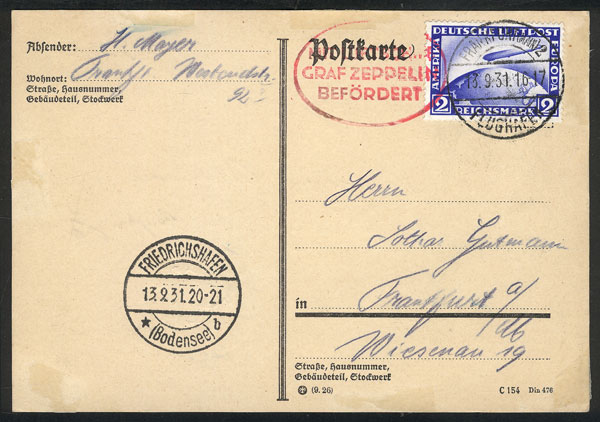 Absender: H. Mayer
Wohnort: Frankft. Westendstr.
Straße, Hausnummer, 92
Gebäudeteil, Stockwerk
Postkarte
GRAF ZEPPELIN
BEFÖRDERT
DEUTSCHE LUFTPOST
AMERIKA
EUROPA
2 REICHSMARK 2
FRANKFURT (MAIN) 2
13.9.31.16-17
FLUGHAFEN
Herrn
Lothar Gutmann
in Frankfurt a/
M
Wiesenau 19
FRIEDRICHSHAFEN
13.9.31.20-21
(Bodensee) b
Straße, Hausnummer,
Gebäudeteil, Stockwerk
(9. 26)
C 154 Din 476